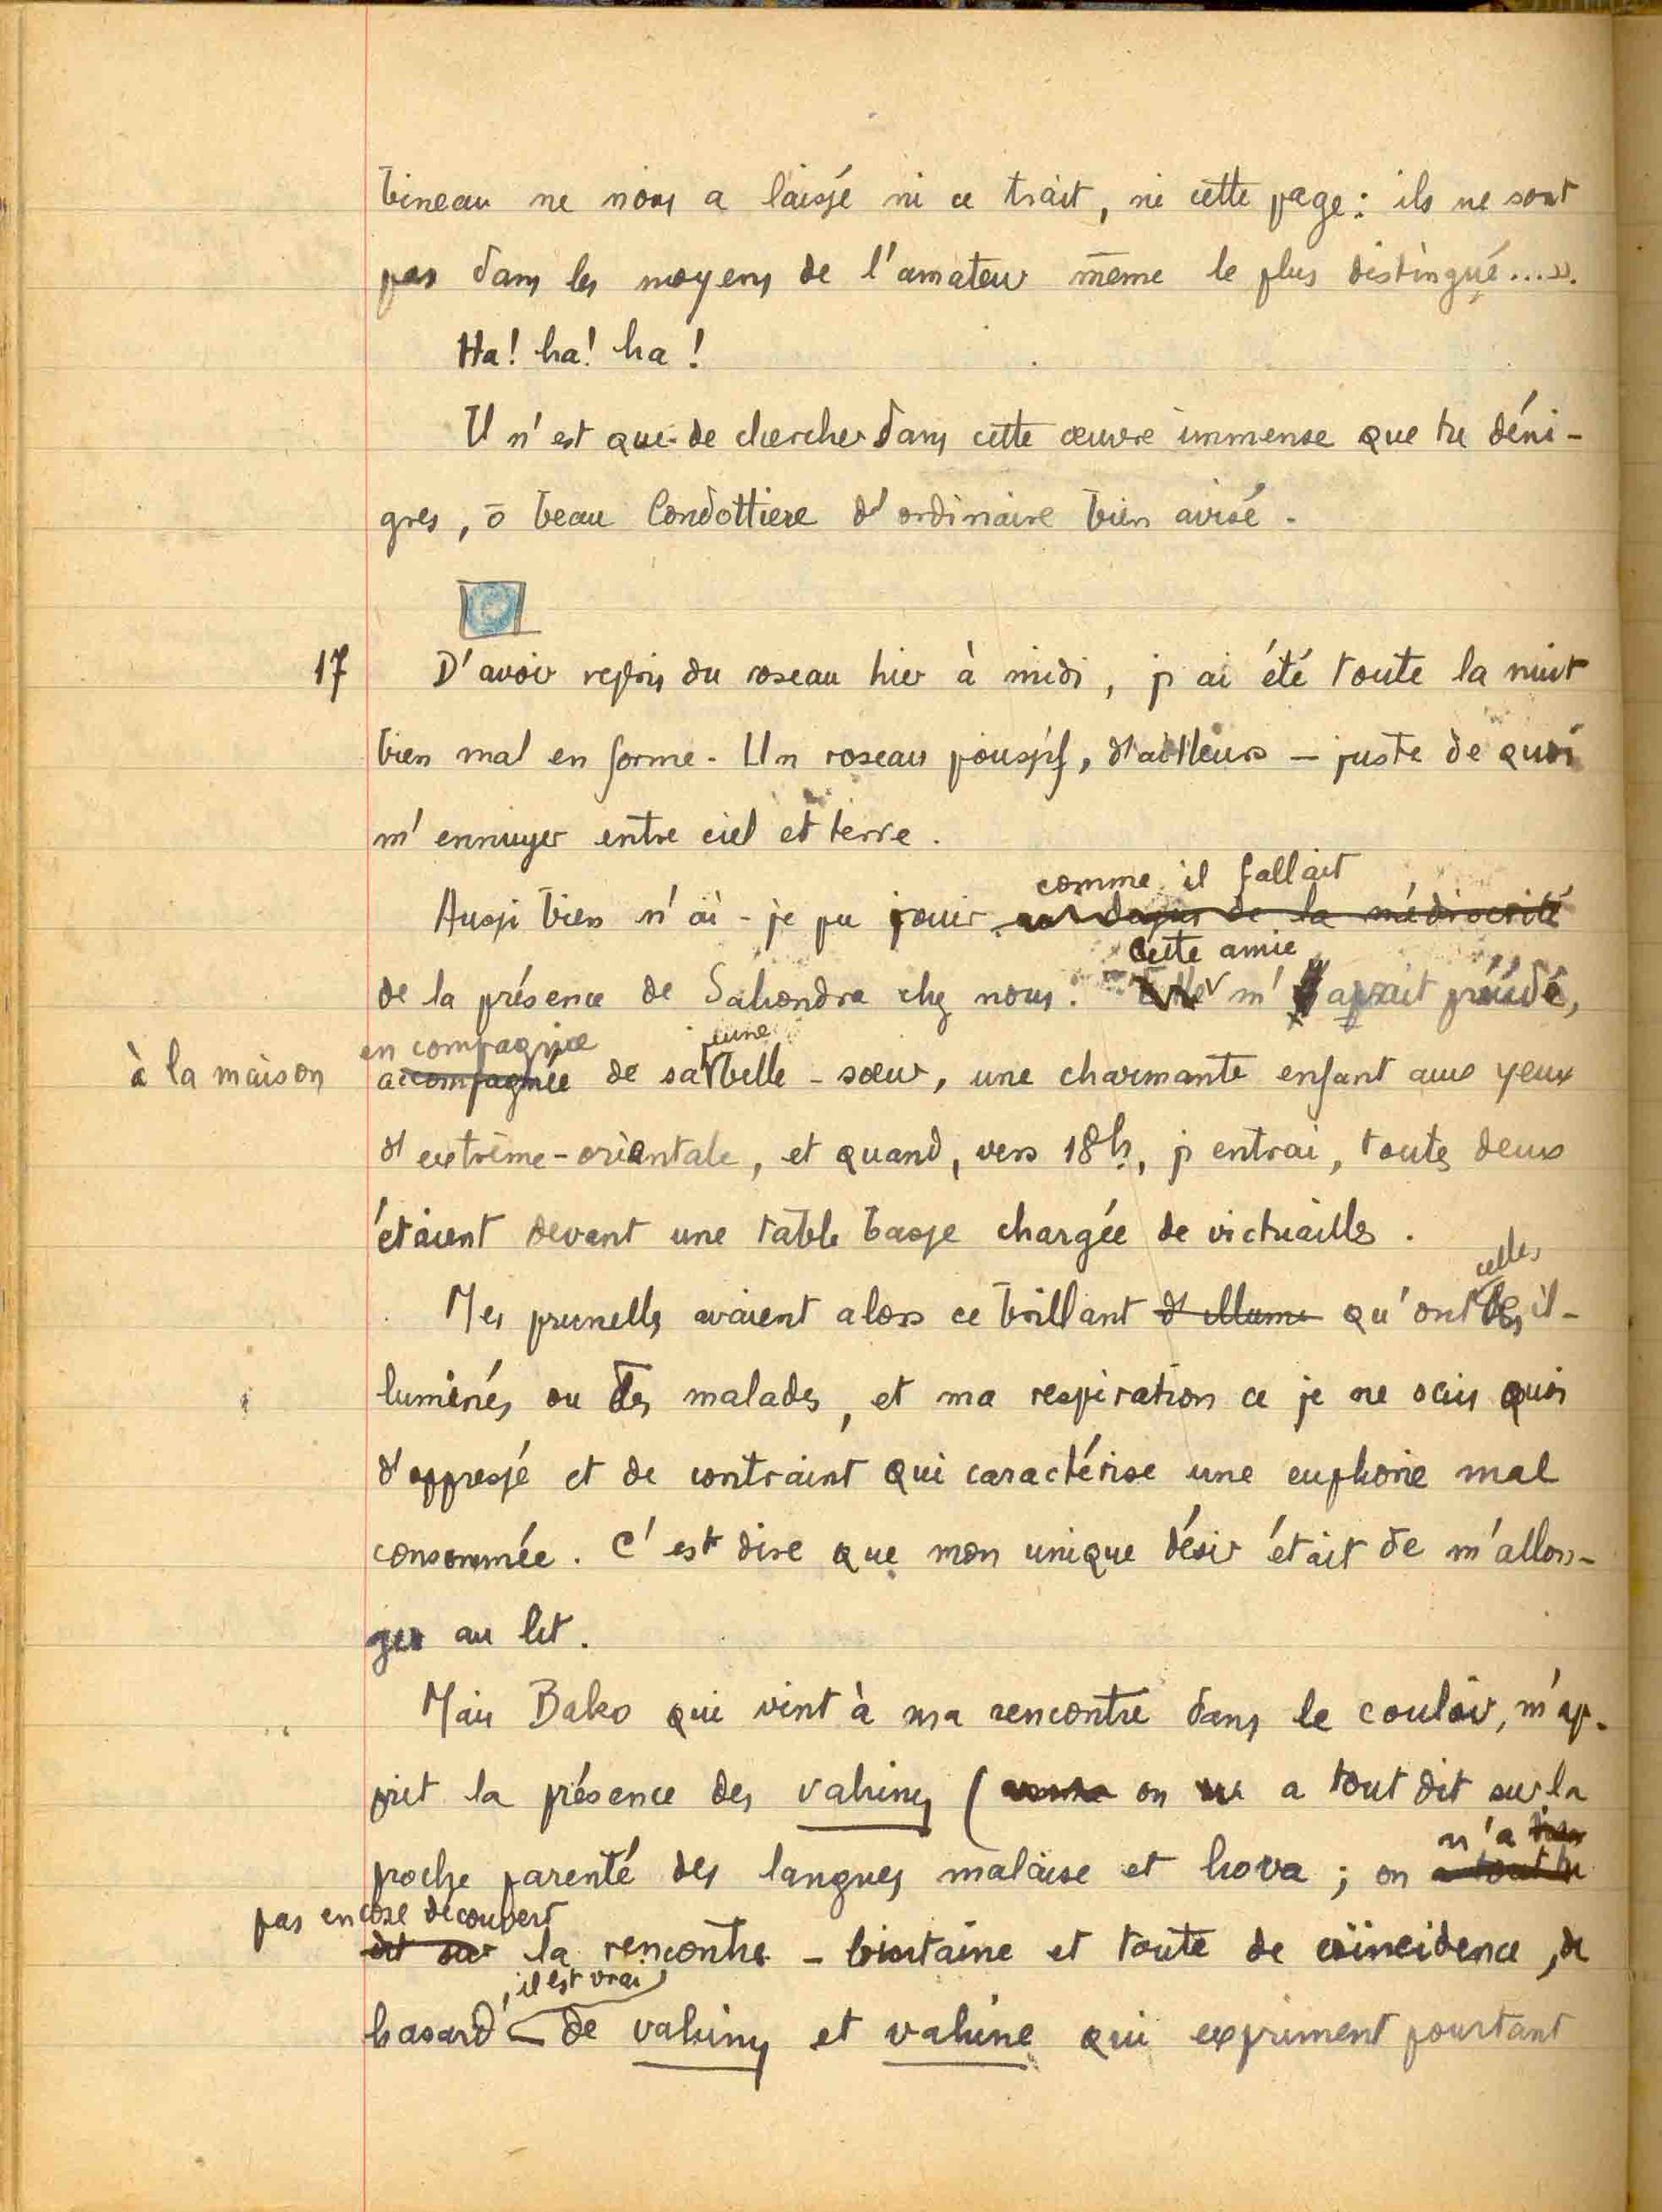 bineau ne nous a laissé ni ce trait, ni cette page : ils ne sont
pas dans les moyens de l'amateur même le plus distingué....».
Ha! ha! ha!
Il n'est que de chercher dans cette œuvre immense que tu déni-
gres, ô beau Condottiere d'ordinaire bien avisé.
17 D'avoir repris du roseau hier à midi, j'ai été toute la nuit
bien mal en forme. Un roseau poussif, d'ailleurs – juste de quoi
m'ennuyer entre ciel et terre.
comme il fallait
Aussi bien n'ai-je pu jouir de la médiocrité
cette amie
de la présence de Sahondra chez nous. Elle m'avait précédé,
en compagnie jeune
à la maison accompagnée de sa belle-sœur, une charmante enfant aux yeux
d'extrême-orientale, et quand, vers 18h, j'entrai, toutes deux
étaient devant une table basse chargée de victuailles.
celles
Mes prunelles avaient alors ce brillant d'illumi qu'ont des il-
luminés ou des malades, et ma respiration ce je ne sais quoi
d'oppressé et de contraint qui caractérise une euphorie mal
consommée. C'est dire que mon unique désir était de m'allon-
ger au lit.
Mais Bako qui vint à ma rencontre dans le couloir, m'ap-
prit la présence des vahiny ( on a tout dit sur la
n'a
proche parenté des langues malaise et hova ; on a tout
pas encore découvert
dit sur la rencontre – lointaine et toute de coïncidence, de
, il est vrai
hasard de vahiny et vahine qui expriment pourtant